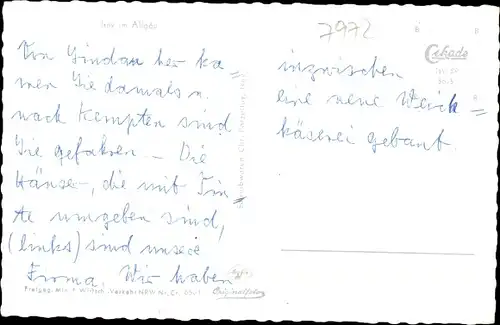 Isny im Allgäu
7972
Cekade
Von Lindau her ka=
men Sie damals u.
nach Kempten sind
Sie gefahren – Die
Häuser, die mit Tin=
te umgeben sind,
(links) sind unsere
Firma. Wir haben
inzwischen
eine neue Weich=
käserei gebaut.
Originalfoto